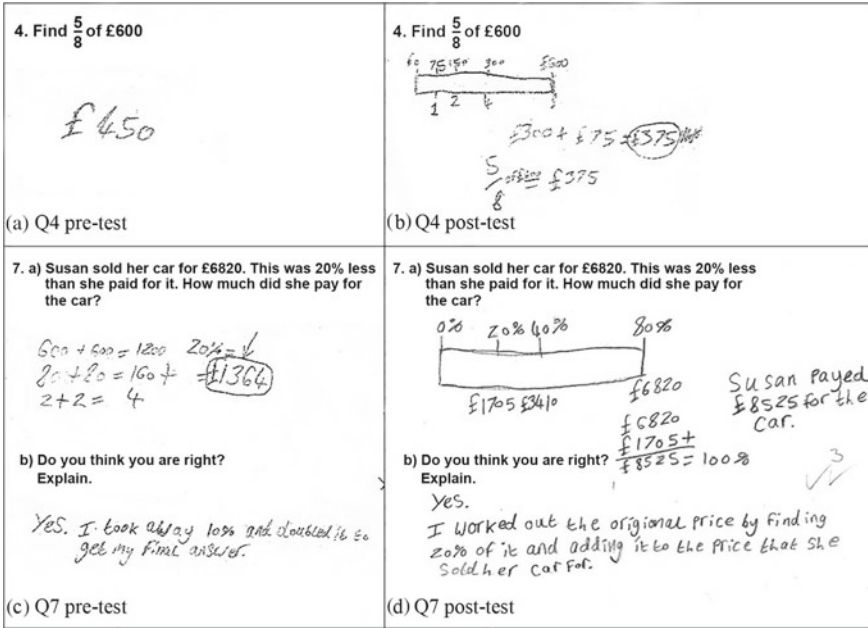 4. Find 5/8 of £600
£450
(a) Q4 pre-test
4. Find 5/8 of £600
£0 75 150 300 £600
1 2 4
£300 + £75 = £375
5/8 of £600 = £375
(b) Q4 post-test
7. a) Susan sold her car for £6820. This was 20% less
than she paid for it. How much did she pay for
the car?
600 + 600 = 1200 20% = ↓
80 + 80 = 160 + = £1364
2 + 2 = 4
b) Do you think you are right?
Explain.
Yes. I took away 10% and doubled it to
get my final answer.
(c) Q7 pre-test
7. a) Susan sold her car for £6820. This was 20% less
than she paid for it. How much did she pay for
the car?
0% 20% 40% 80%
£1705 £3410 £6820
Susan payed
£8525 for the
car.
£6820
£1705 +
£8525 = 100%
b) Do you think you are right?
Explain.
3
Yes.
I worked out the origional price by finding
20% of it and adding it to the price that she
sold her car for.
(d) Q7 post-test